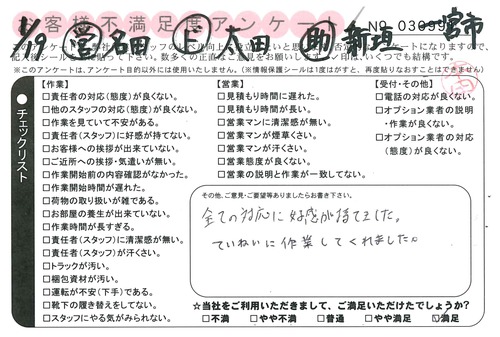 お客様不満足度アンケート
No 03099
1/9 営 名田 ド 太田 助 新垣 一宮市
※このアンケートは、アンケート目的以外には使用いたしません。(※情報保護シールは1度がはすと、再度貼りなおすことはできません)
チェックリスト
【作業】
□責任者の対応(態度)が良くない。
□他のスタッフの対応(態度)が良くない。
□作業を見ていて不安がある。
□責任者(スタッフ)に好感が持てない。
□お客様への挨拶が出来ていない。
□ご近所への挨拶・気遣いが無い。
□作業開始前の内容確認がなかった。
□作業開始時間が遅れた。
□荷物の取り扱いが雑である。
□お部屋の養生が出来ていない。
□作業時間が長すぎる。
□責任者(スタッフ)に清潔感が無い。
□責任者(スタッフ)が汗くさい。
□トラックが汚い。
□梱包資材が汚い。
□運転が不安(下手)である。
□靴下の履き替えをしてない。
□スタッフにやる気がみられない。
【営業】
□見積もり時間に遅れた。
□見積もり時間が長い。
□営業マンに清潔感が無い。
□営業マンが煙草くさい。
□営業マンが汗くさい。
□営業態度が良くない。
□営業の説明と作業が一致してない。
【受付・その他】
□電話の対応が良くない。
□オプション業者の説明
・作業が良くない。
□オプション業者の対応
(態度)が良くない。
その他、ご意見・ご要望等ありましたらお書き下さい。
全ての対応に好感が持てました。
ていねいに作業してくれました。
☆当社をご利用いただきまして、ご満足いただけたでしょうか?
□不満 □やや不満 □普通 □やや満足 ☑満足